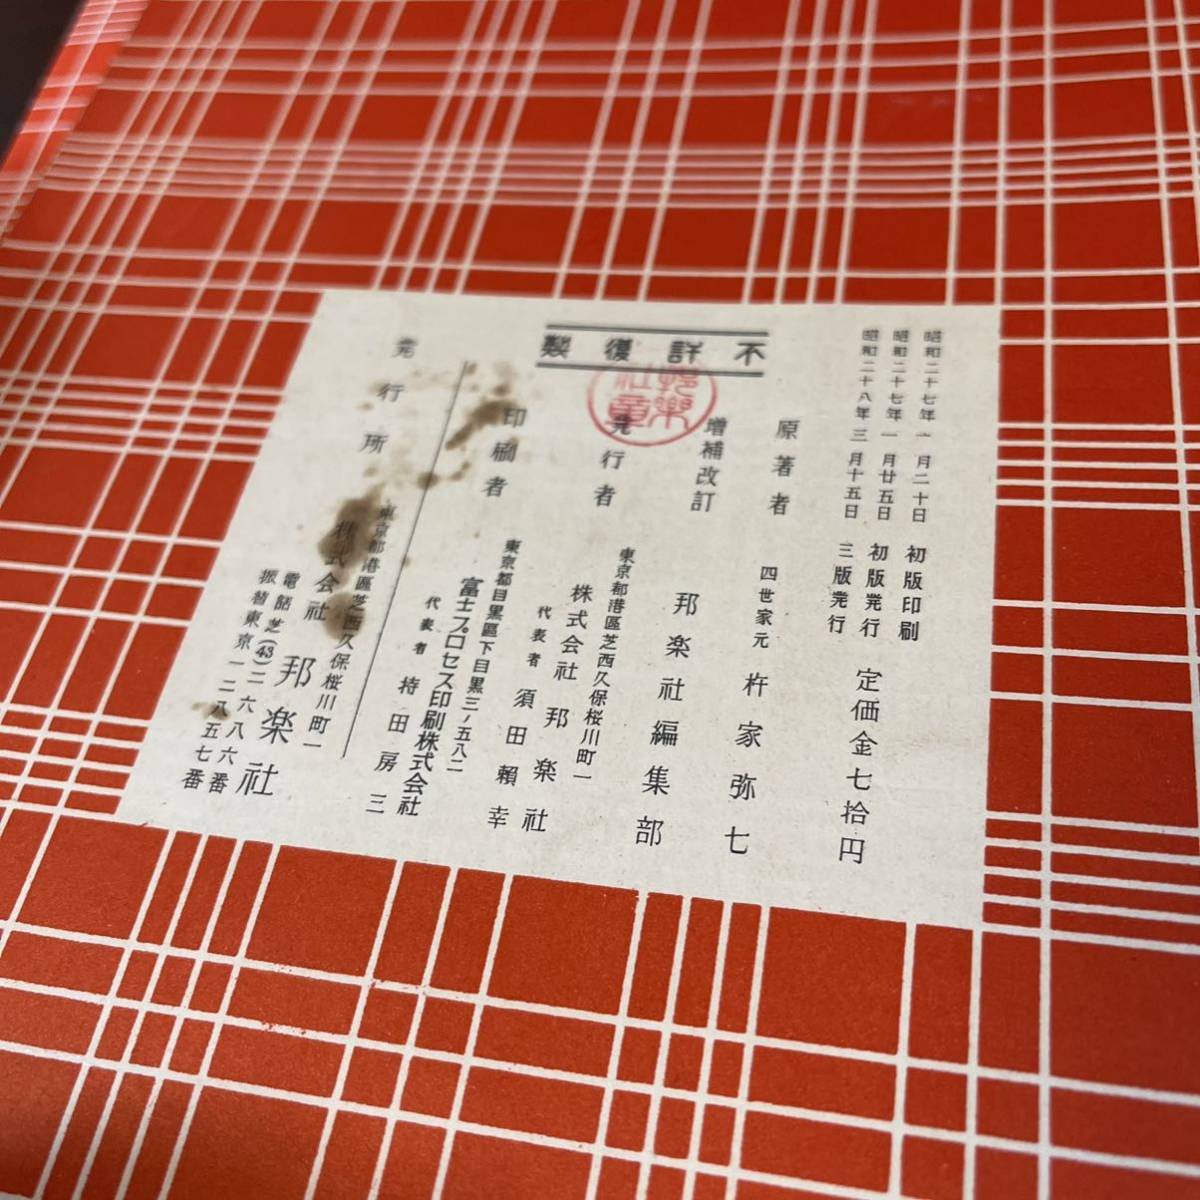 昭和二十七年一月二十日 初版印刷
昭和二十七年一月廿五日 初版発行
昭和二十八年三月十五日 三版発行
定価金七拾円
不許復製
原著者 四世家元 杵家弥七
増補改訂 邦楽社編集部
発行者 東京都港區芝西久保桜川町一
株式会社 邦楽社
代表者 須田頼幸
印刷者 東京都目黒區下目黒三ノ五八二
富士プロセス印刷株式会社
代表者 持田房三
発行所 東京都港區芝西久保桜川町一
株式会社 邦楽社
電話芝(43)二六八六番
振替東京一二八五七番
邦楽社章